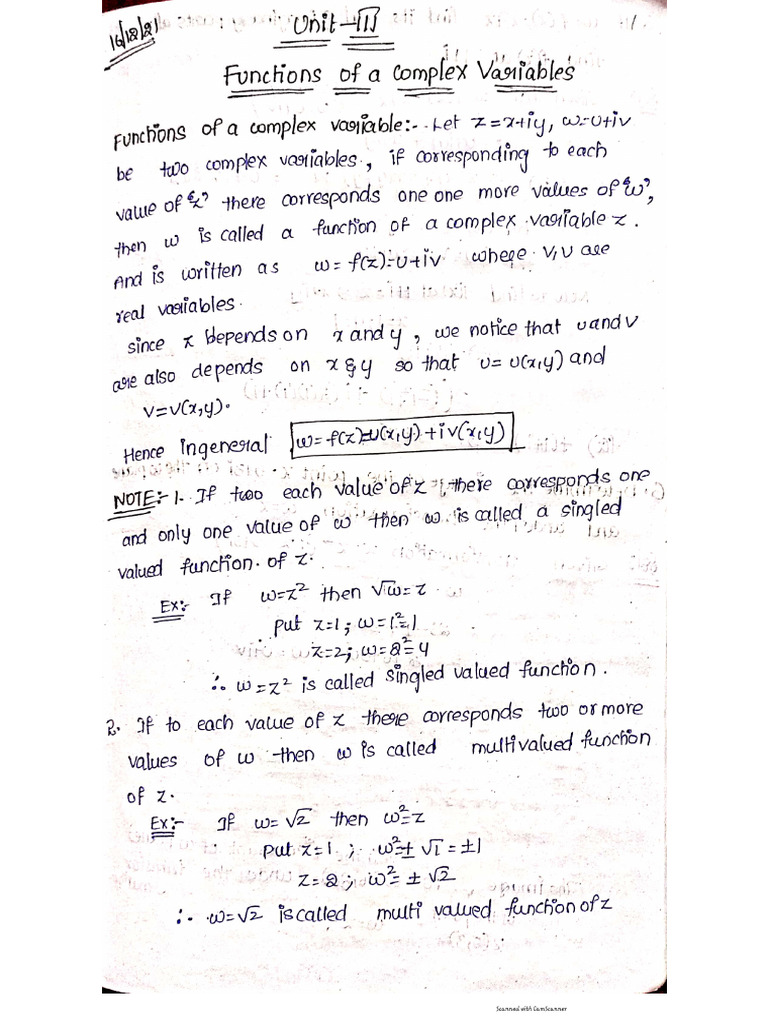 16/12/21
Unit-III
Functions of a complex Variables
Functions of a complex variable:- Let z=x+iy, w=u+iv
be two complex variables, if corresponding to each
value of 'z' there corresponds one one more values of 'w',
then w is called a function of a complex variable z.
And is written as w=f(z)=u+iv where v,u are
real variables.
since x depends on x and y, we notice that u and v
are also depends on x & y so that u=u(x,y) and
v=v(x,y).
Hence ingeneral w=f(z)=u(x,y)+iv(x,y)
NOTE:- 1. If two each value of z there corresponds one
and only one value of w then w is called a singled
valued function of z.
Ex:- If w=z² then √w=z
put z=1; w=1²=1
z=2; w=2²=4
∴ w=z² is called singled valued function.
2. If to each value of z there corresponds two or more
values of w then w is called multivalued function
of z.
Ex:- If w=√2 then w²=z
put z=1; w²=±√1=±1
z=2; w²=±√2
∴ w=√2 is called multi valued function of z
Scanned with CamScanner